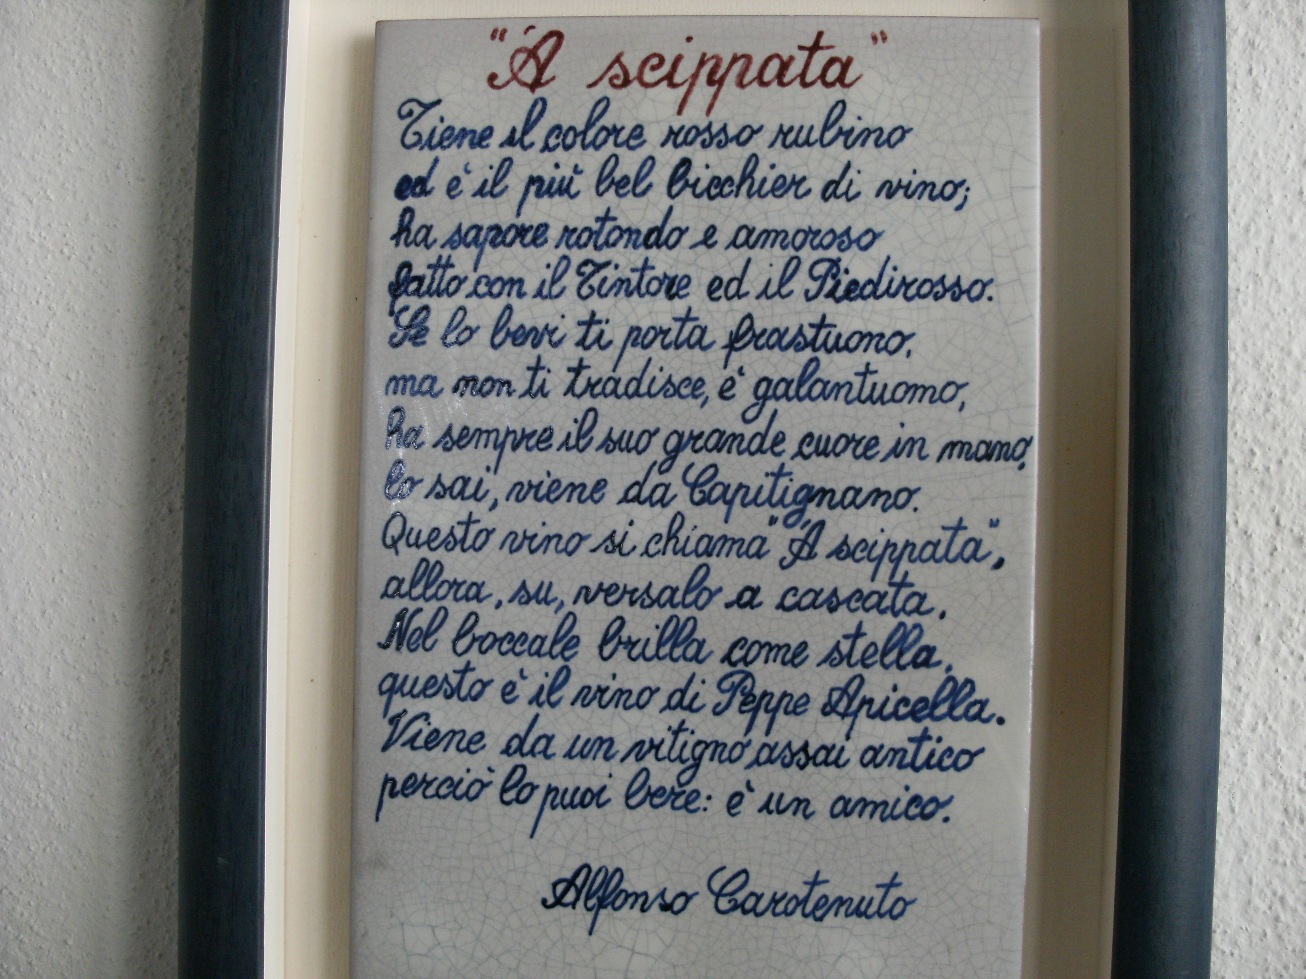 "'A scippata"
Tiene il colore rosso rubino
ed è il più bel bicchier di vino;
ha sapore rotondo e amoroso
fatto con il Tintore ed il Piedirosso.
Se lo bevi ti porta frastuono,
ma non ti tradisce, è galantuomo,
ha sempre il suo grande cuore in mano,
lo sai, viene da Capitignano.
Questo vino si chiama "'A scippata",
allora, su, versalo a cascata.
Nel boccale brilla come stella,
questo è il vino di Peppe Apicella.
Viene da un vitigno assai antico
perciò lo puoi bere: è un amico.
Alfonso Carotenuto